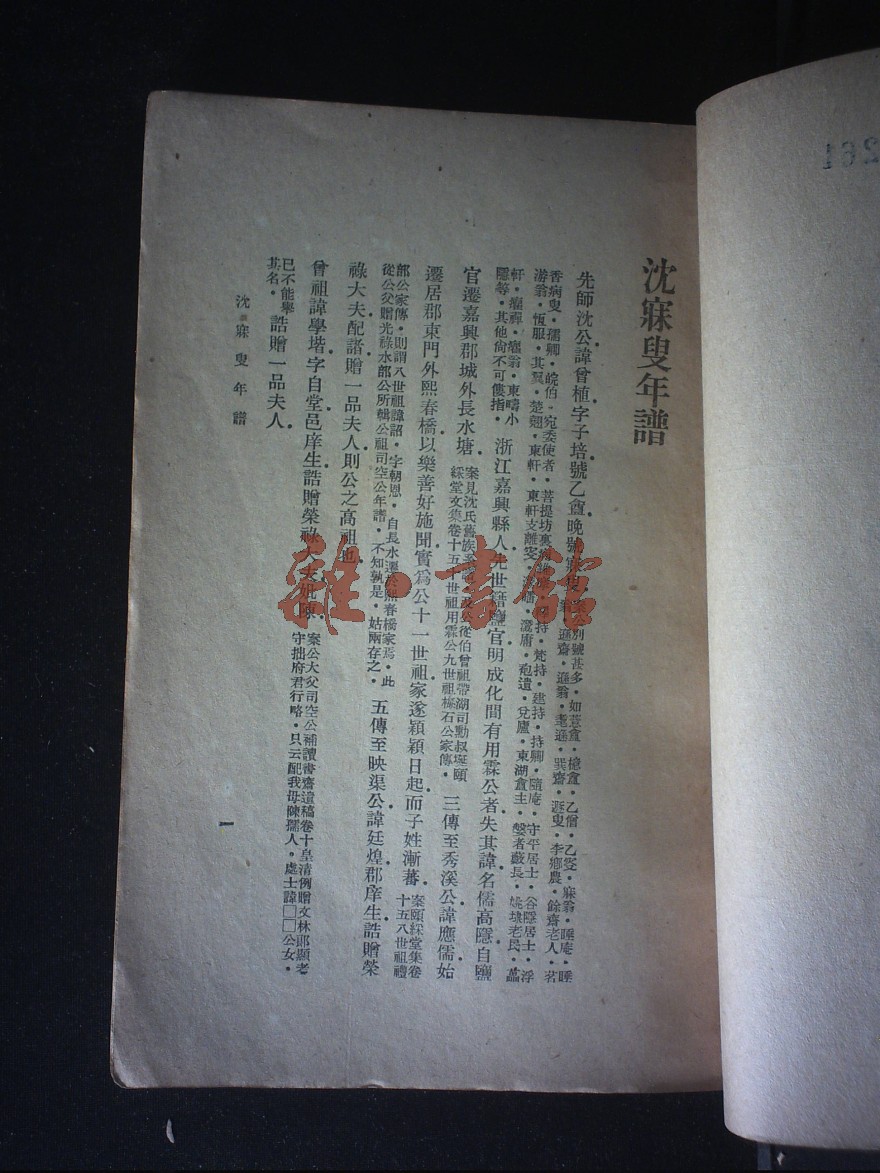 沈寐叟年譜
先師沈公諱曾植字子培號乙盦晚號寐叟
案公別號甚多。如薏盦。檍盦。乙僧。乙叟。寐翁。睡庵。睡
香病叟。孺卿。皖伯。宛委使者。菩提坊裏病維摩。
遜齋。遜翁。耄遜。巽齋。遯叟。李鄉農。餘齋老人。茗
游翁。恆服。其翼。楚翹。東軒。東軒支離叟。
梵持。建持。持卿。隨庵。守平居士。谷隱居士。浮
軒。癯禪。癯翁。東疇小
灊庸。兌廬。東湖盦主。
姚埭老民。
隱等。其他尙不可僂指。
浙江嘉興縣人先世籍鹽官明成化間有用霖公者失其諱名儒高隱自鹽
官遷嘉興郡城外長水塘。
案見沈氏舊族
公從伯曾祖帶湖司勳叔埏頤
綵堂文集卷十五十世祖用霖公九世祖樑石公家傳。
三傳至秀溪公諱應儒始
遷居郡東門外熙春橋以樂善好施聞實爲公十一世祖家遂穎穎日起而子姓漸蕃。
案頤綵堂集卷
十五八世祖禮
部公家傳。則謂八世祖諱詔。字朝恩。自長水遷於熙春橋家焉。此
從公父贈光祿水部公所輯公祖司空公年譜。不知孰是。姑兩存之。
五傳至映渠公諱廷煌郡庠生誥贈榮
祿大夫配諸贈一品夫人則公之高祖也
曾祖諱學堦字自堂邑庠生誥贈榮祿大夫妣陳
案公大父司空公補讀書齋遺稿卷十皇清例贈文林郞顯考
守拙府君行略。只云配我母陳孺人。處士諱□□公女。
已不能舉
其名。
誥贈一品夫人。
沈寐叟年譜
一
雜·書館
261